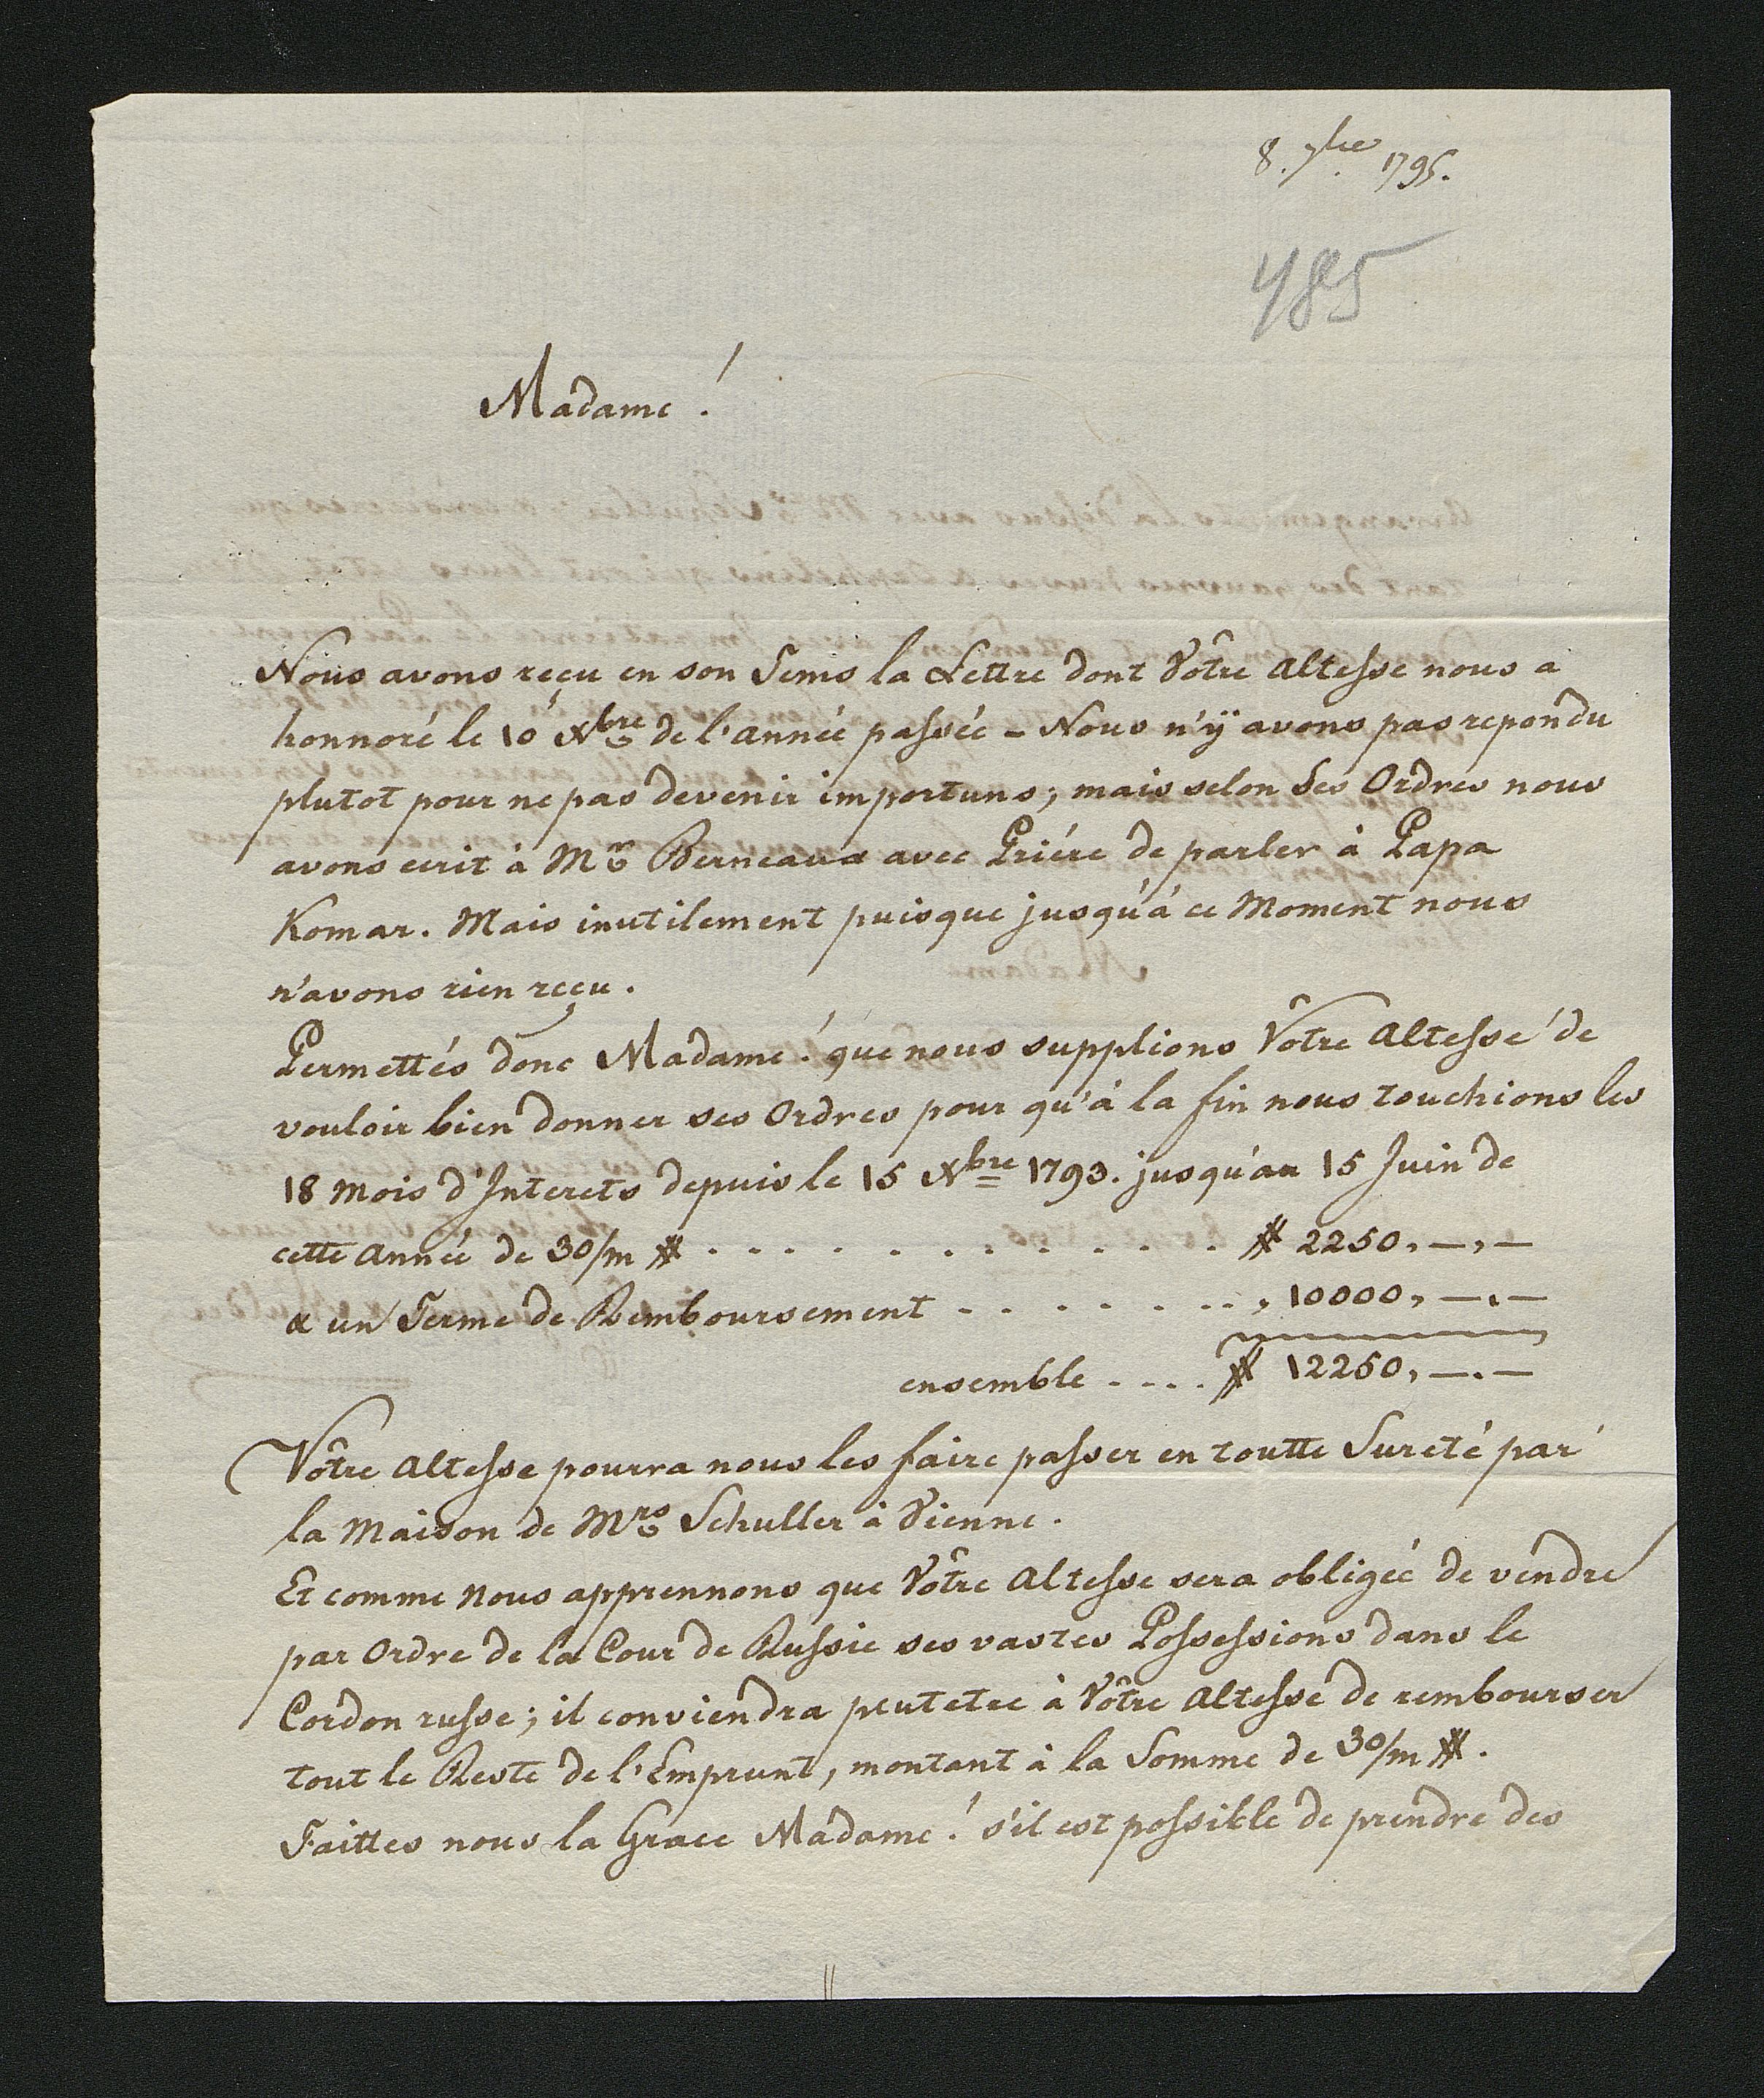 8. 7bre. 1795.
485
Madame!
Nous avons reçu en son Tems la Lettre dont Vôtre Altesse nous a
honnoré le 10 Xbre de l'année passée - Nous n'ÿ avons pas repondu
plutot pour ne pas devenir importuns; mais selon Ses Ordres nous
avons ecrit à Mr Berneaux avec Priére de parler à Papa
Komar. Mais inutilement puisque jusqu'à ce Moment nous
n'avons rien reçu.
Permettés donc Madame! que nous supplions Vôtre Altesse de
vouloir bien donner ses Ordres pour qu'à la fin nous touchions les
18 Mois d'Interets depuis le 15 Xbre 1793. jusqu'au 15 Juin de
cette Année de 30/m # . . . . . . . . . . . # 2250,—,—
& un Terme de Remboursement . . . . . . . . , 10000,—.—
ensemble . . . . # 12250,—.—
Vôtre Altesse pourra nous les faire passer en toutte Sureté par
la Maison de Mrs Schuller à Vienne.
Et comme nous apprennons que Vôtre Altesse sera obligée de vendre
par Ordre de la Cour de Russie ses vastes Possessions dans le
Cordon russe; il conviendra peutetre à Vôtre Altesse de rembourser
tout le Reste de l'Emprunt, montant à la Somme de 30/m #.
Faittes nous la Grace Madame! s'il est possible de prendre des